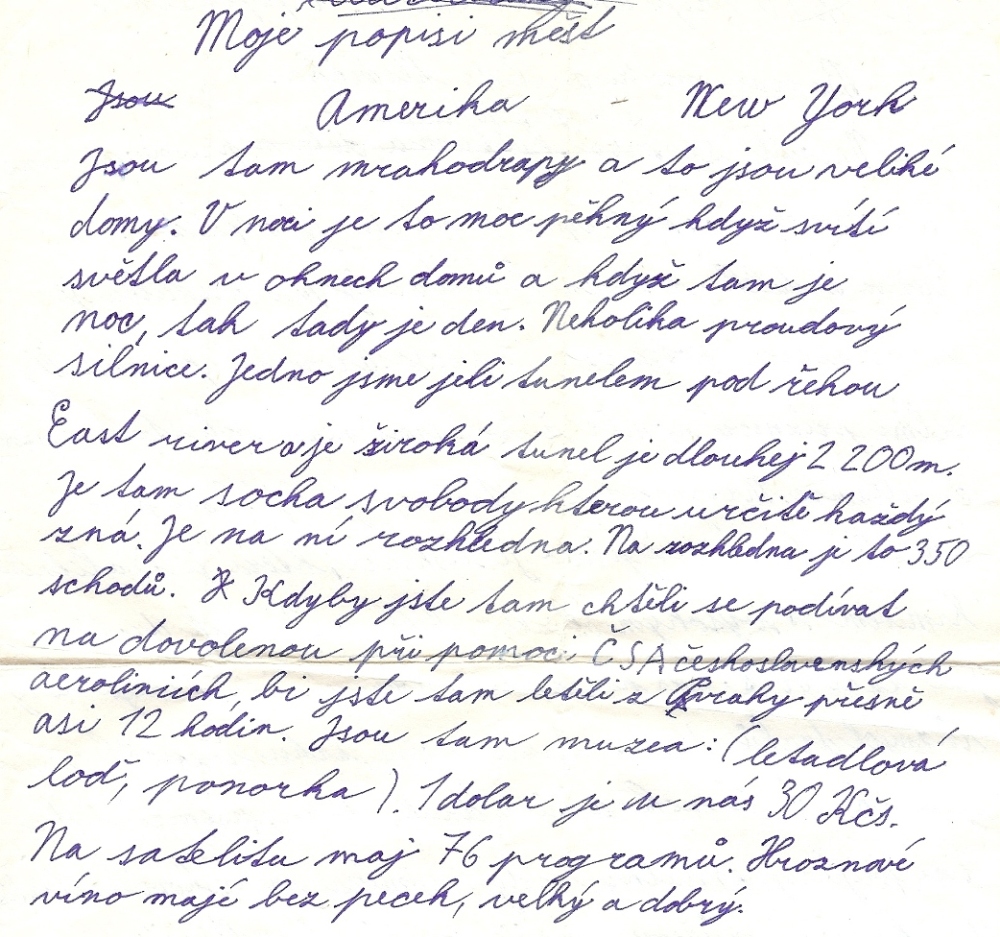 Moje popisi měst
Jsou Amerika - New York
Jsou tam mrakodrapy a to jsou veliké
domy. V noci je to moc pěkný když svítí
světla v oknech domů a když tam je
noc, tak tady je den. Nekolika proudový
silnice. Jedno jsme jeli tunelem pod řekou
East river a je široká tunel je dlouhej 2 200 m.
Je tam socha svobody kterou určitě každý
zná. Je na ní rozhledna. Na rozhledna je to 350
schodů. Kdyby jste tam chtěli se podívat
na dovolenou při pomoci ČSA československých
aeroliniích, bi jste tam letěli z Prahy přesně
asi 12 hodin. Jsou tam muzea: (letadlová
loď, ponorka). 1 dolar je u nás 30 Kčs.
Na satelitu maj 76 programů. Hroznové
víno mají bez pecek, velký a dobrý.